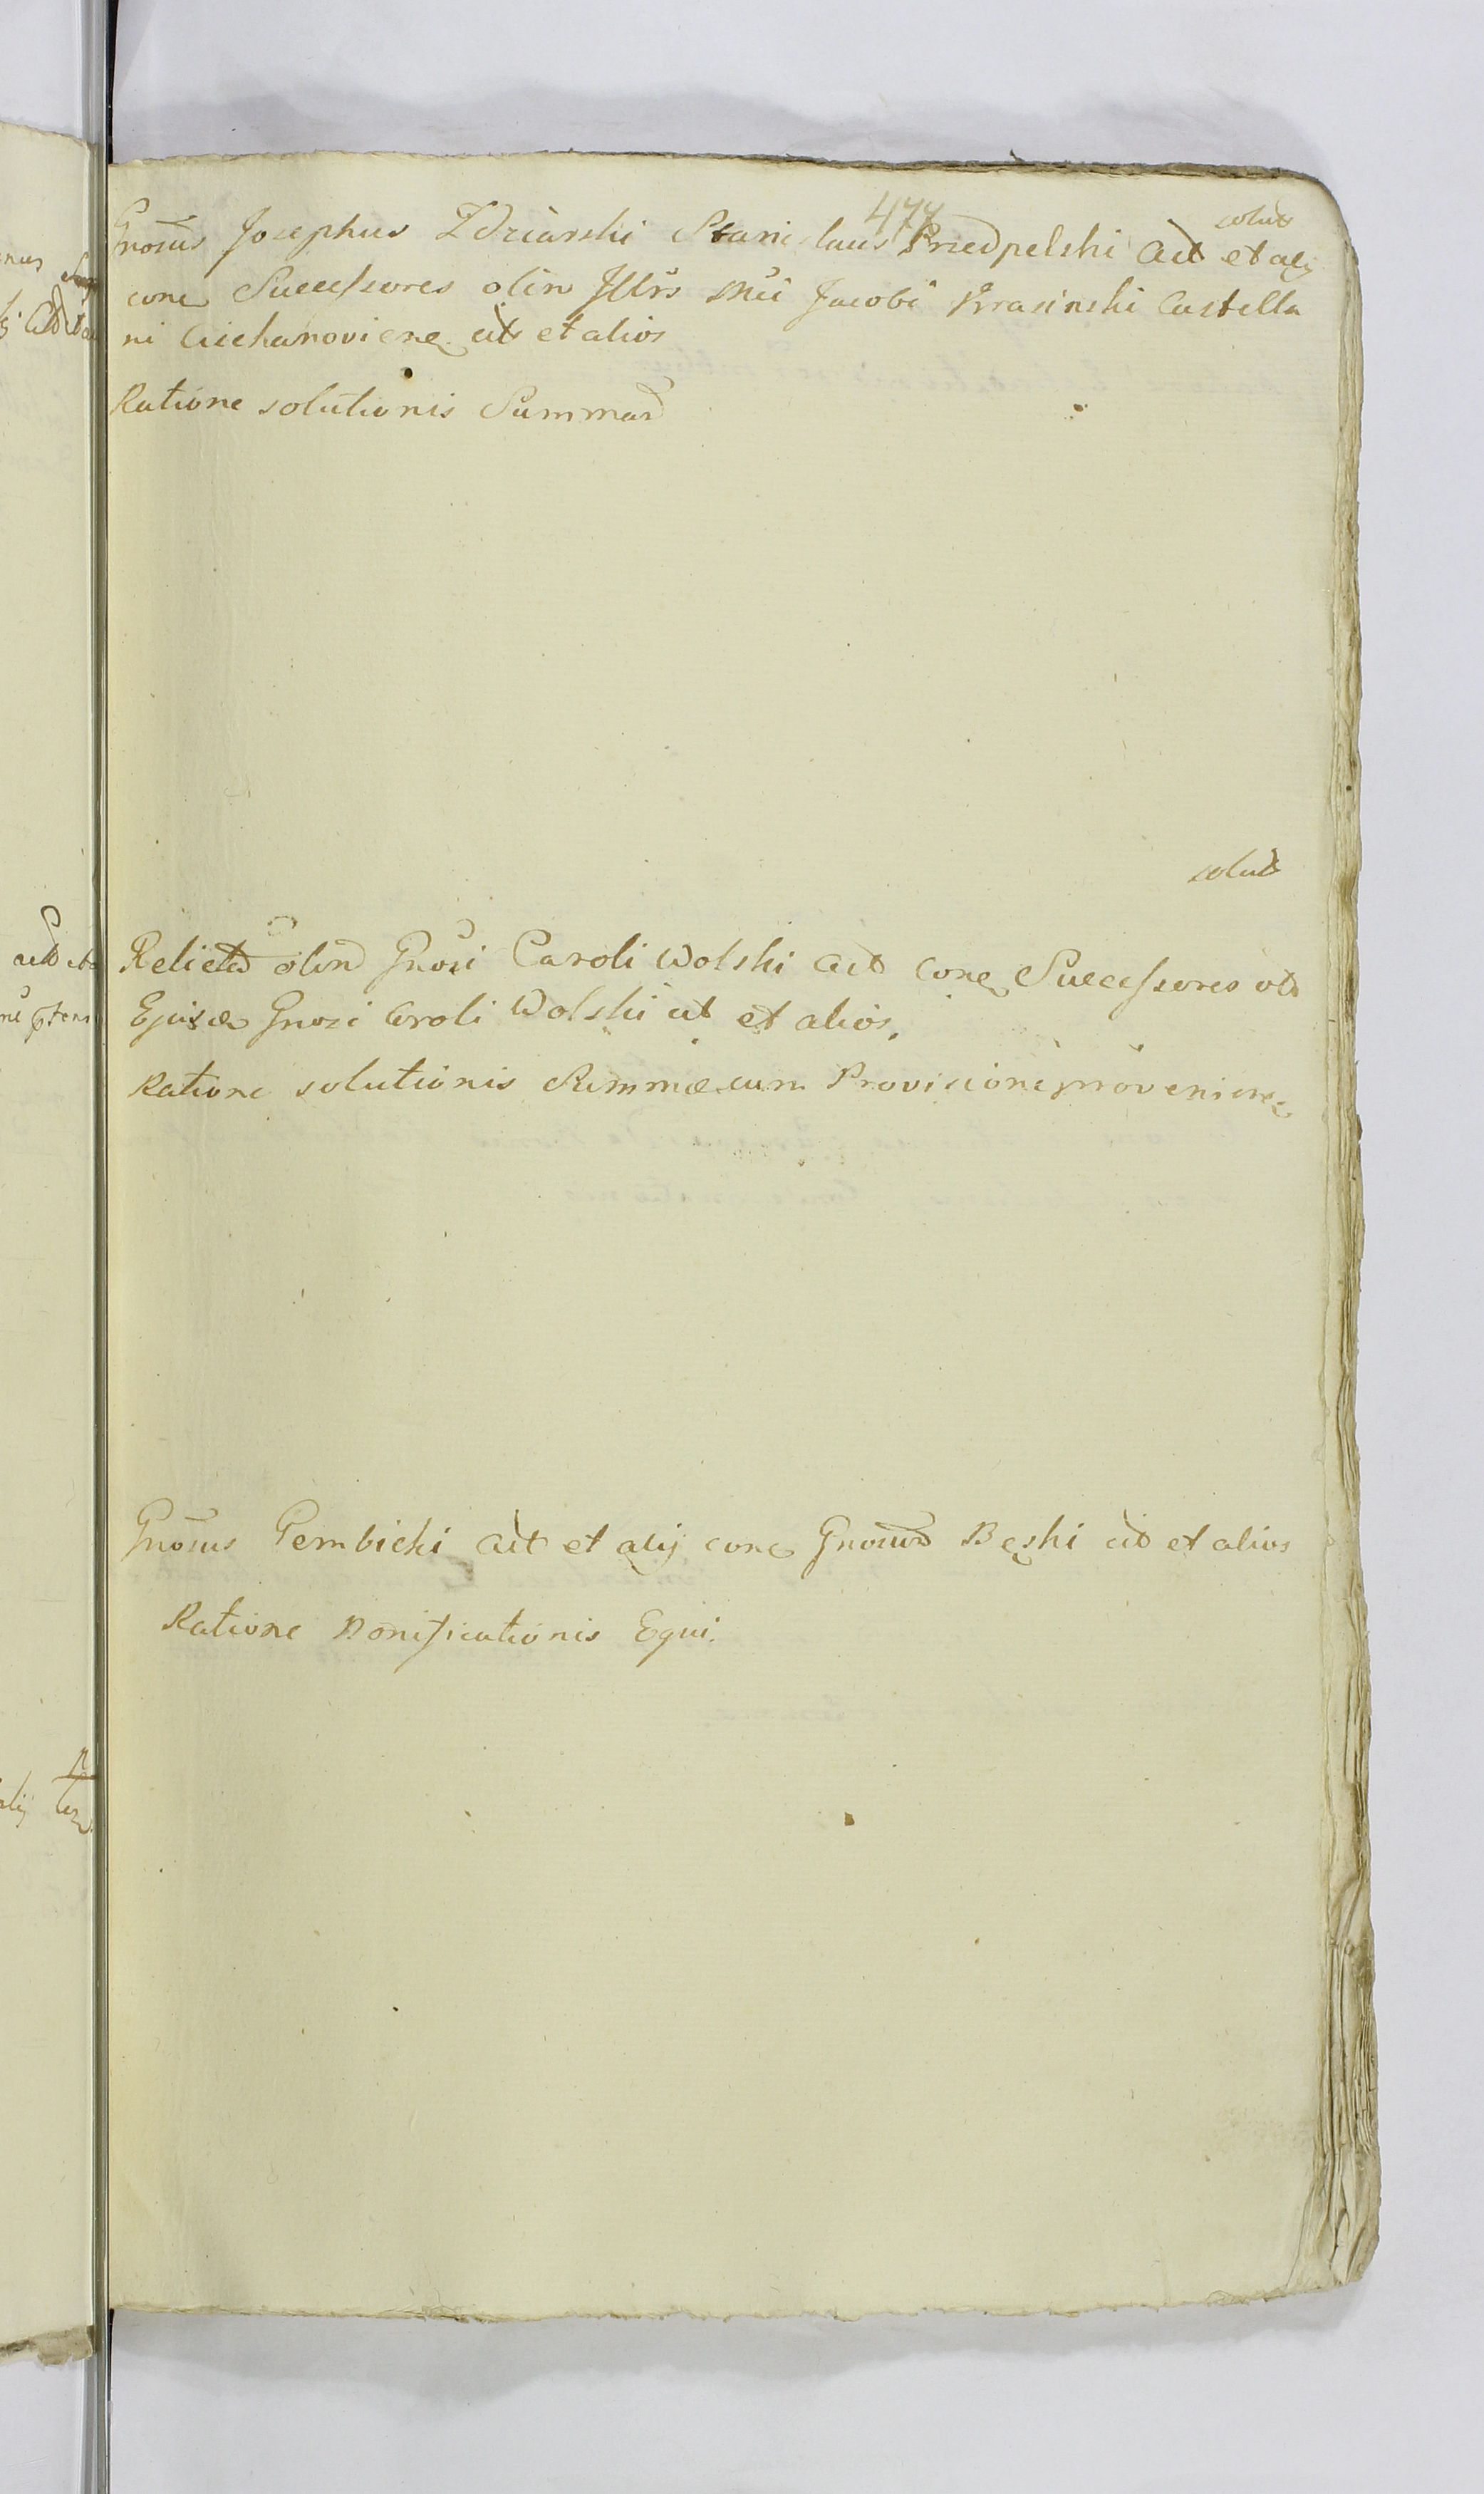 477
solut
Gnosus Josephus Zdziarski Stanislaus Przedpelski act et alij
conc Successores olim Illris Mci Jacobi Krasinski Castella
ni Ciechanoviene act et alios
Ratione solutionis Summar
solut
Relicta olim Gnosi Caroli Wolski act conc Successores ot
Ejusde Gnosi Caroli Wolski act et alios.
Ratione solutionis Summæ cum Provisione provenien
Gnosus Pembicki act et alij conc Gnosum Beski act et alios
Ratione Bonificationis Equi.